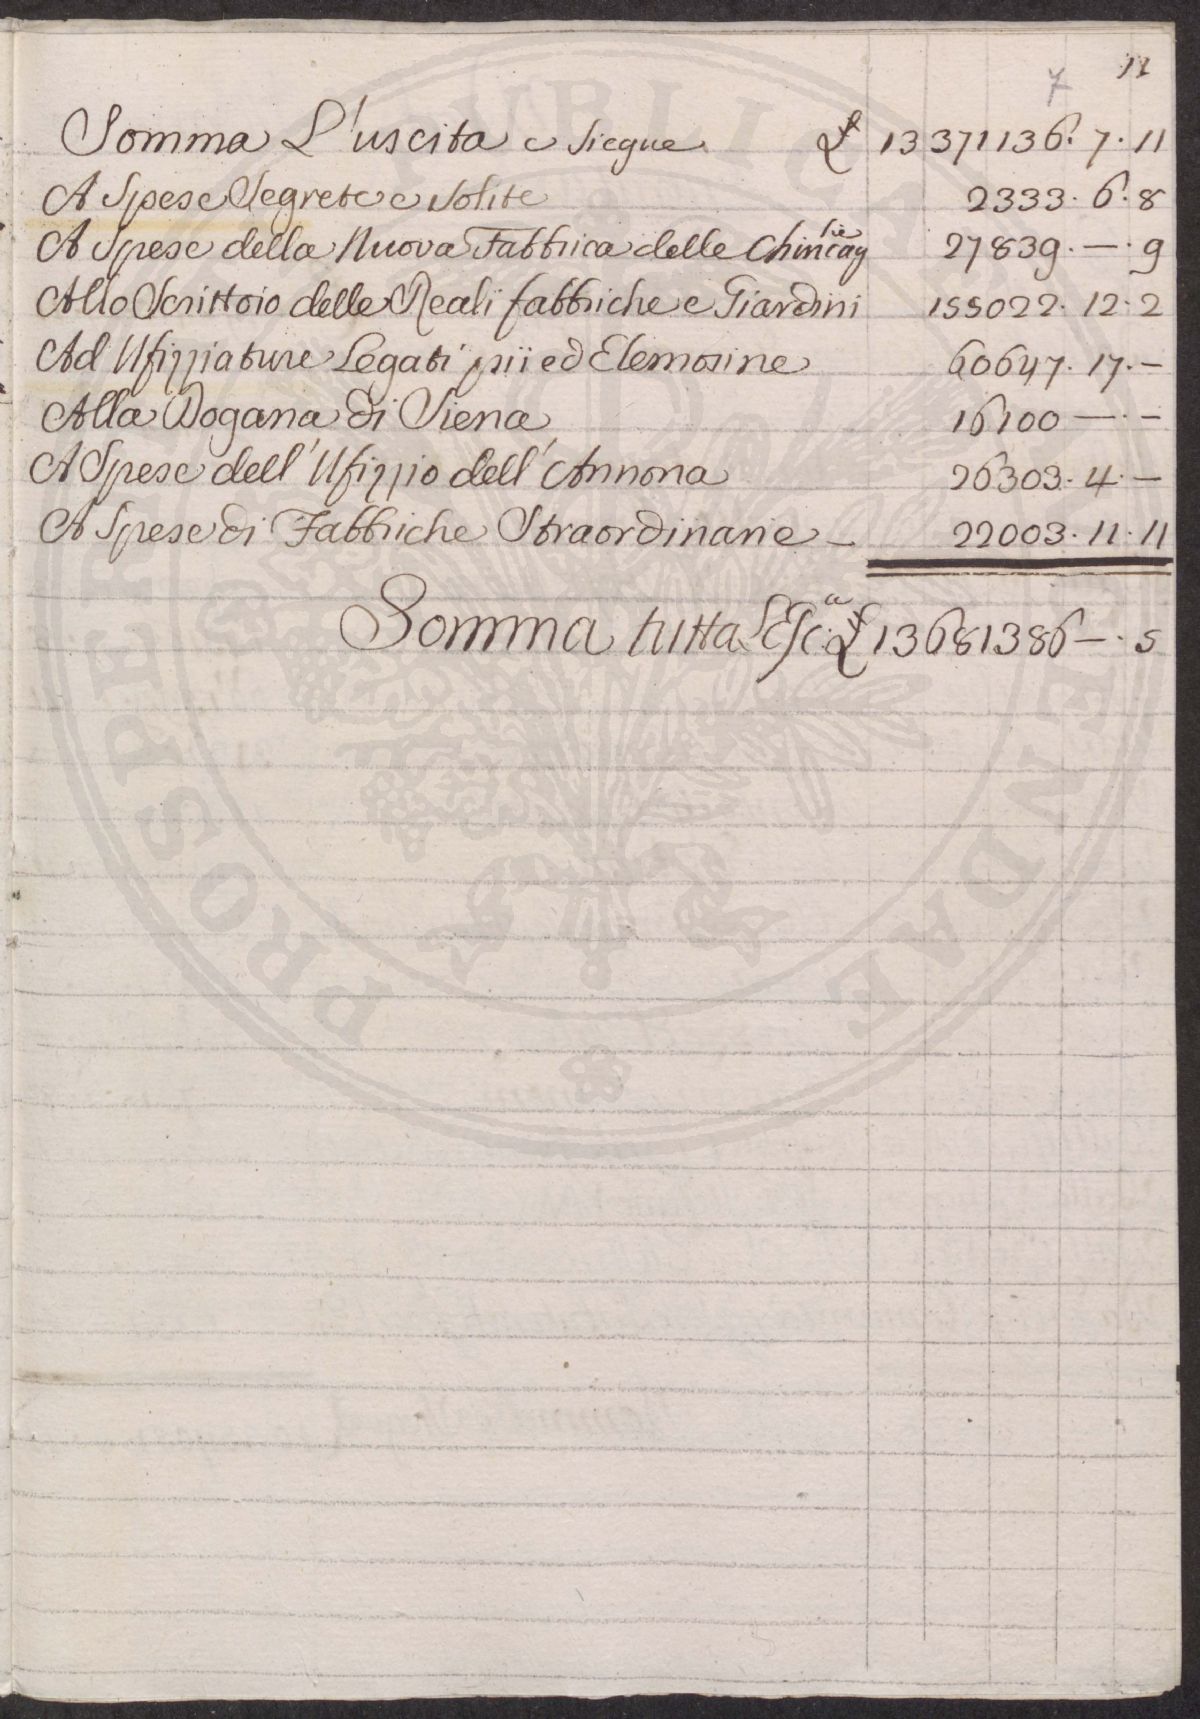 7 11
Somma L'uscita e Siegue £ 13371136. 7. 11
A Spese Segrete e Solite 2333. 6. 8
A Spese della Nuova Fabbrica delle Chincag.lie 27839. —. 9
Allo Scrittoio delle Reali fabbriche e Giardini 155022. 12. 2
Ad Ufizziature Legati pii ed Elemosine 60647. 17. —
Alla Dogana di Siena 16100 —. —
A Spese dell'Ufizzio dell'Annona 26303. 4. —
A Spese di Fabbriche Straordinarie — 22003. 11. 11
Somma tutta £ 13681386 —. 5